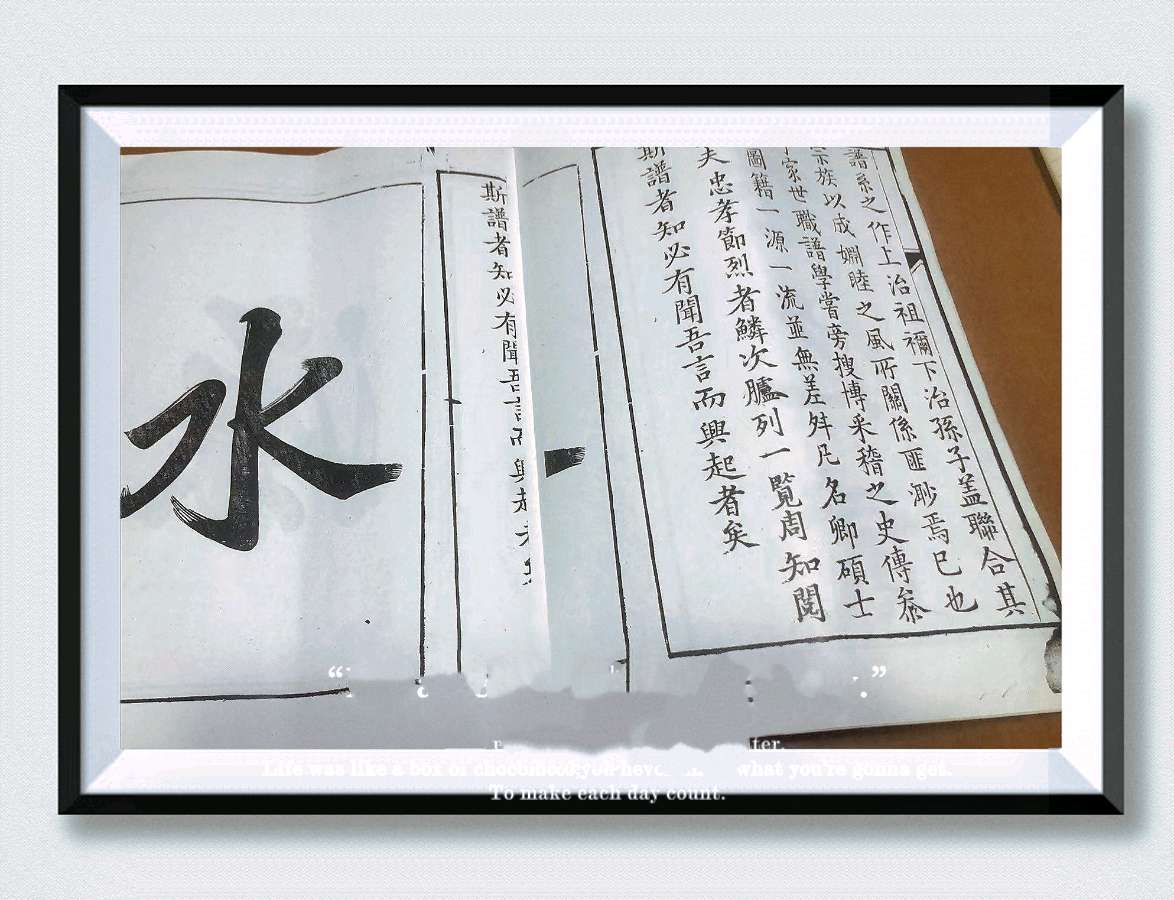 譜系之作上治祖禰下治孫子盖聯合其
宗族以成婣睦之風所關係匪渺焉已也
家世職譜學當旁搜博采稽之史傳叅
圖籍一源一流並無差舛凡名卿碩士
夫忠孝節烈者鱗次臚列一覽周知閱
斯譜者知必有聞吾言而興起者矣
斯譜者知必有聞吾言而興起
水
Life was like a box of you what you're gonna get.
To make each day count.